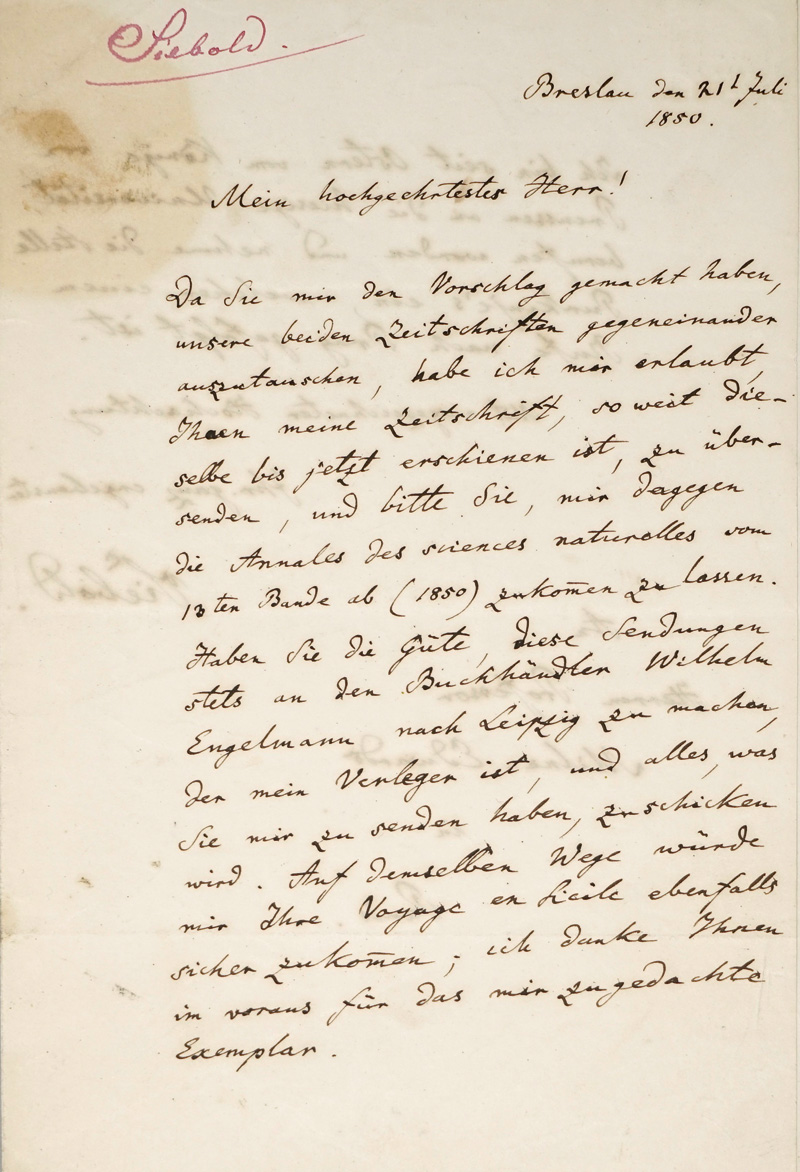 Siebold.
Breslau den 21t Juli
1850.
Mein hochgeehrtester Herr!
Da Sie mir den Vorschlag gemacht haben,
unsere beiden Zeitschriften gegeneinander
auszutauschen, habe ich mir erlaubt,
Ihnen meine Zeitschrift, so weit die-
selbe bis jetzt erschienen ist, zu über-
senden, und bitte Sie, mir dagegen
die Annales des sciences naturelles vom
13ten Bande ab (1850) zukom̅en zu lassen.
Haben Sie die Güte, diese Sendungen
stets an den Buchhändler Wilhelm
Engelmann nach Leipzig zu machen,
der mein Verleger ist, und alles, was
Sie mir zu senden haben, zuschicken
wird. Auf demselben Wege würde
mir Ihre Voyage en Sicile ebenfalls
sicher zukom̅en; ich danke Ihnen
im voraus für das mir zugedachte
Exemplar.